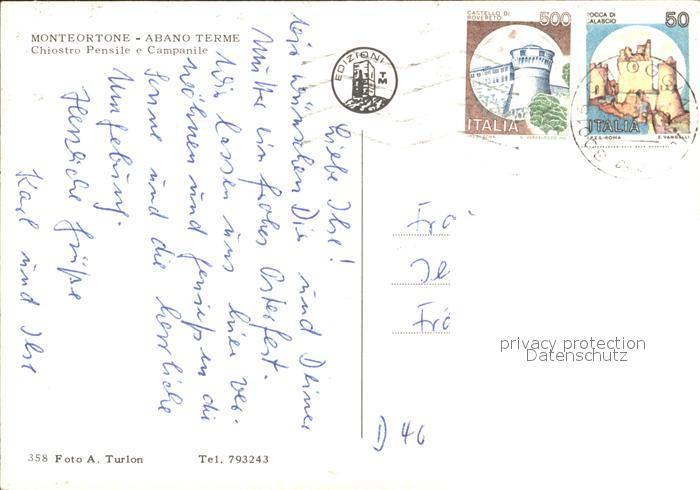 MONTEORTONE - ABANO TERME
Chiostro Pensile e Campanile
EDIZIONI
TM
CASTELLO DI
ROVERETO
500
ITALIA
ROCCA DI
CALASCIO
50
ITALIA
I.P.Z.S. ROMA
E. VANGELLI
Liebe Ilse!
wünschen Dir und Deiner
Mutter ein frohes Osterfest.
Wir lassen uns hier ver-
wöhnen und genießen die
Sonne und die herrliche
Umgebung.
Herzliche Grüße
Karl und Ilse
Frä
Il
Frä
privacy protection
Datenschutz
D 46
358 Foto A. Turlon
Tel. 793243